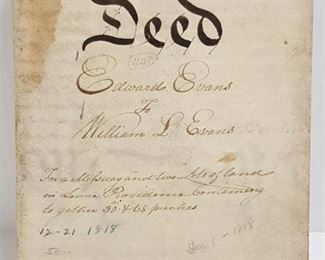 Deed
448
Edward Evans
To
William L Evans
For a Messuage and two Lots of lands
in Lower Providence Containing
together 30 & 65 perches
12-21 1818
500
Dec 1818